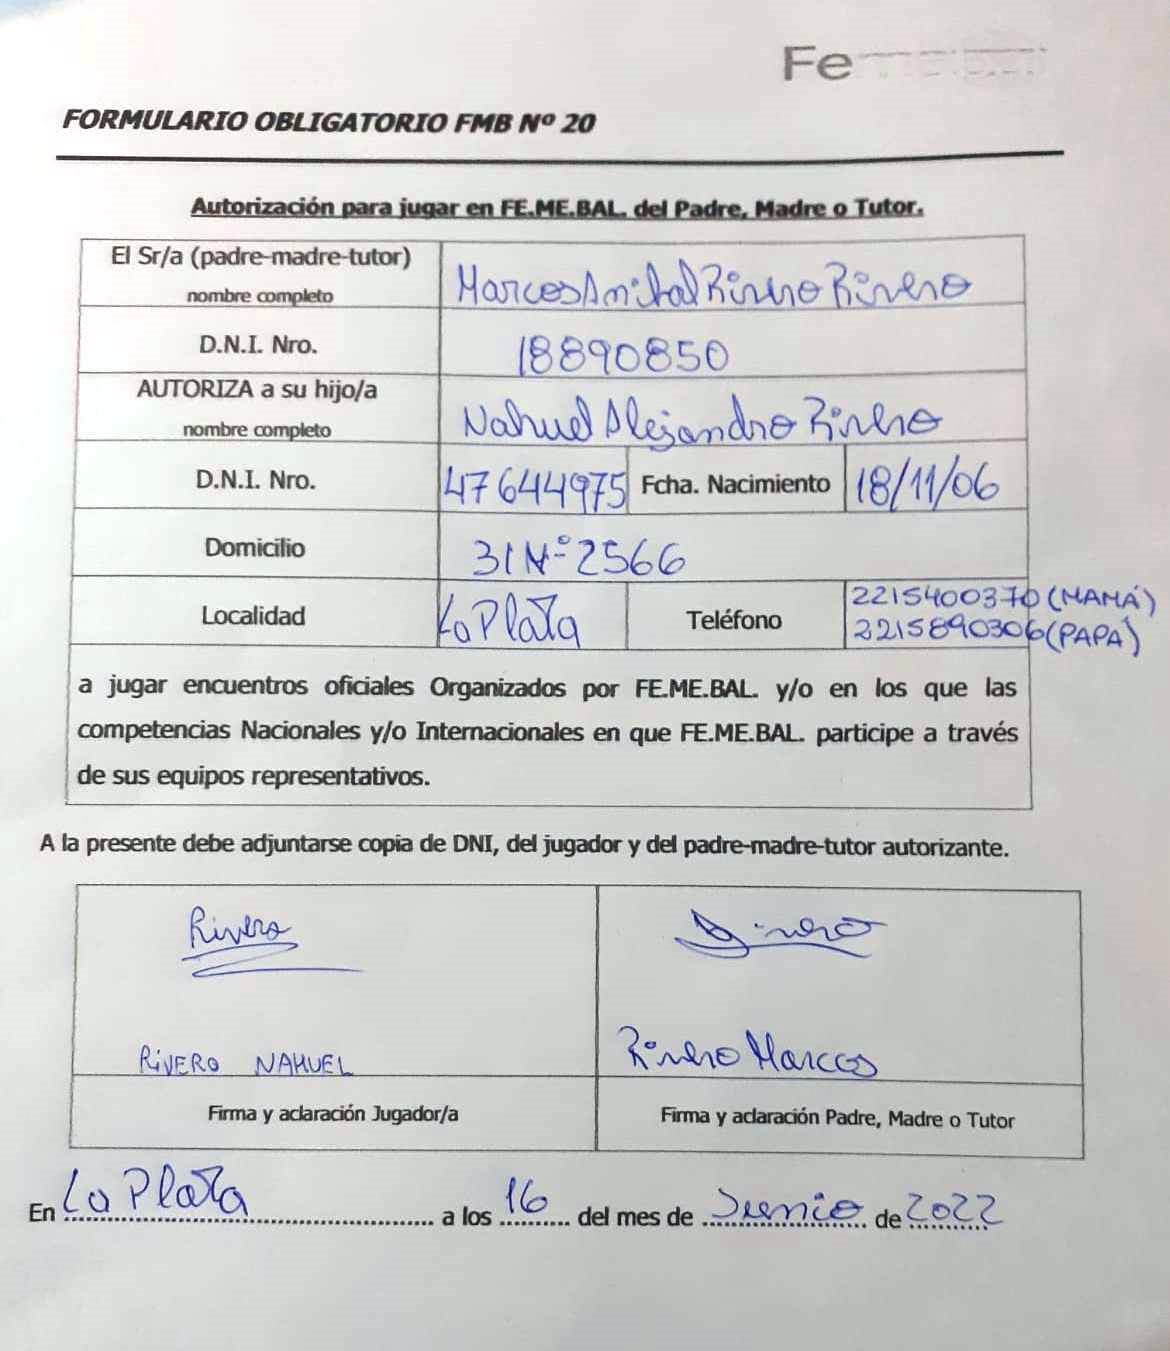 Fe
FORMULARIO OBLIGATORIO FMB Nº 20
Autorización para jugar en FE.ME.BAL. del Padre, Madre o Tutor.
El Sr/a (padre-madre-tutor)
nombre completo
Marcos Anibal Rivero Rivero
D.N.I. Nro.
18890850
AUTORIZA a su hijo/a
nombre completo
Nahuel Alejandro Rivero
D.N.I. Nro. 47644975 Fcha. Nacimiento 18/11/06
Domicilio 31 Nº 2566
Localidad La Plata Teléfono
2215400370 (MAMÁ)
2215890306 (PAPÁ)
a jugar encuentros oficiales Organizados por FE.ME.BAL. y/o en los que las
competencias Nacionales y/o Internacionales en que FE.ME.BAL. participe a través
de sus equipos representativos.
A la presente debe adjuntarse copia de DNI, del jugador y del padre-madre-tutor autorizante.
Rivero
Rivero
RIVERO NAHUEL
Rivero Marcos
Firma y aclaración Jugador/a
Firma y aclaración Padre, Madre o Tutor
En La Plata a los 16 del mes de Junio de 2022